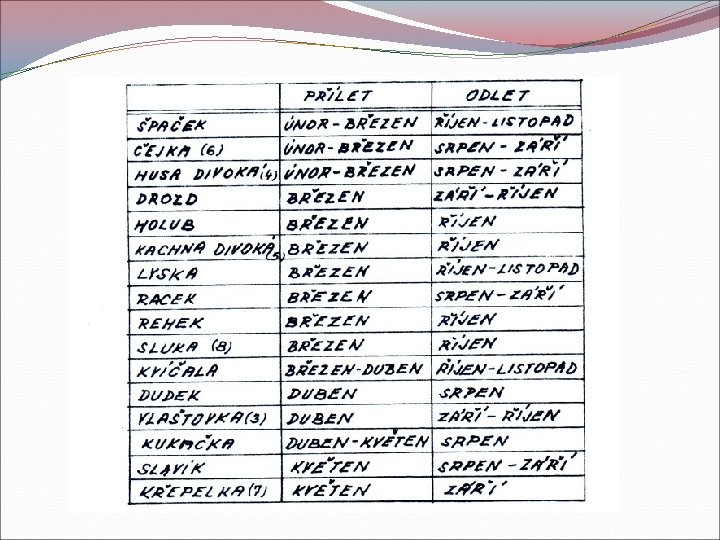 PŘÍLET ODLET
ŠPAČEK ÚNOR-BŘEZEN ŘÍJEN-LISTOPAD
ČEJKA (6) ÚNOR-BŘEZEN SRPEN-ZÁŘÍ
HUSA DIVOKÁ (4) ÚNOR-BŘEZEN SRPEN-ZÁŘÍ
DROZD BŘEZEN ZÁŘÍ-ŘÍJEN
HOLUB BŘEZEN ŘÍJEN
KACHNA DIVOKÁ (5) BŘEZEN ŘÍJEN
LYSKA BŘEZEN ŘÍJEN-LISTOPAD
RACEK BŘEZEN SRPEN-ZÁŘÍ
REHEK BŘEZEN ŘÍJEN
SLUKA (8) BŘEZEN ŘÍJEN
KVÍČALA BŘEZEN-DUBEN ŘÍJEN-LISTOPAD
DUDEK DUBEN SRPEN
VLAŠTOVKA (3) DUBEN ZÁŘÍ-ŘÍJEN
KUKAČKA DUBEN-KVĚTEN SRPEN
SLAVÍK KVĚTEN SRPEN-ZÁŘÍ
KŘEPELKA (7) KVĚTEN ZÁŘÍ